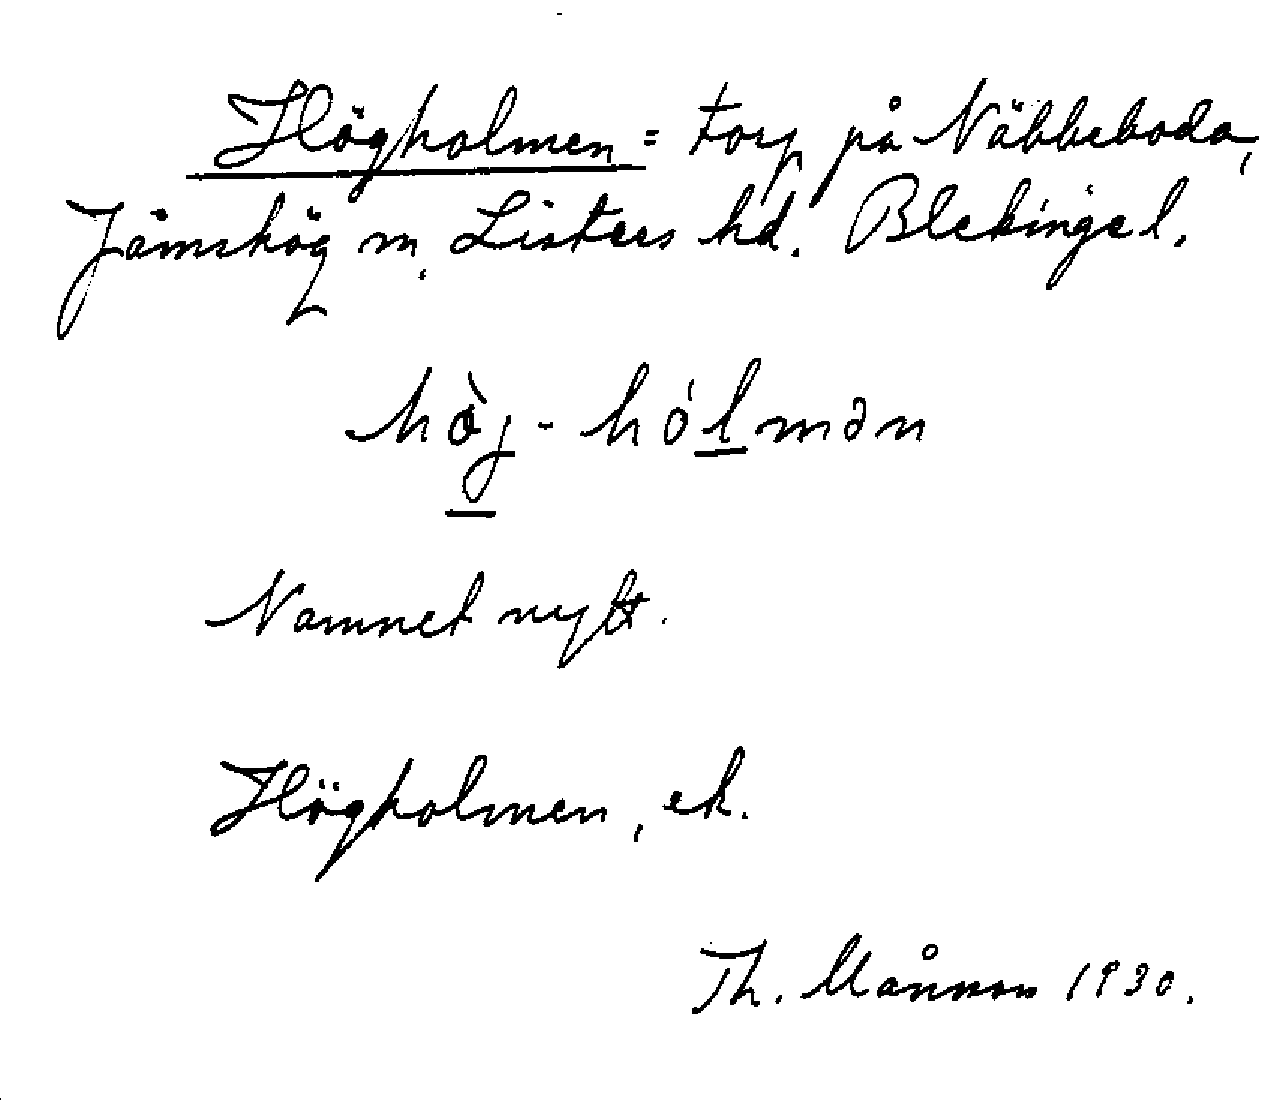 Högholmen = torp på Näbbeboda,
Jämshög sn, Listers hd. Blekinge l.
hò̱j - hól̲mən
Namnet nytt.
Högholmen, ek.
Th. Månsson 1930.